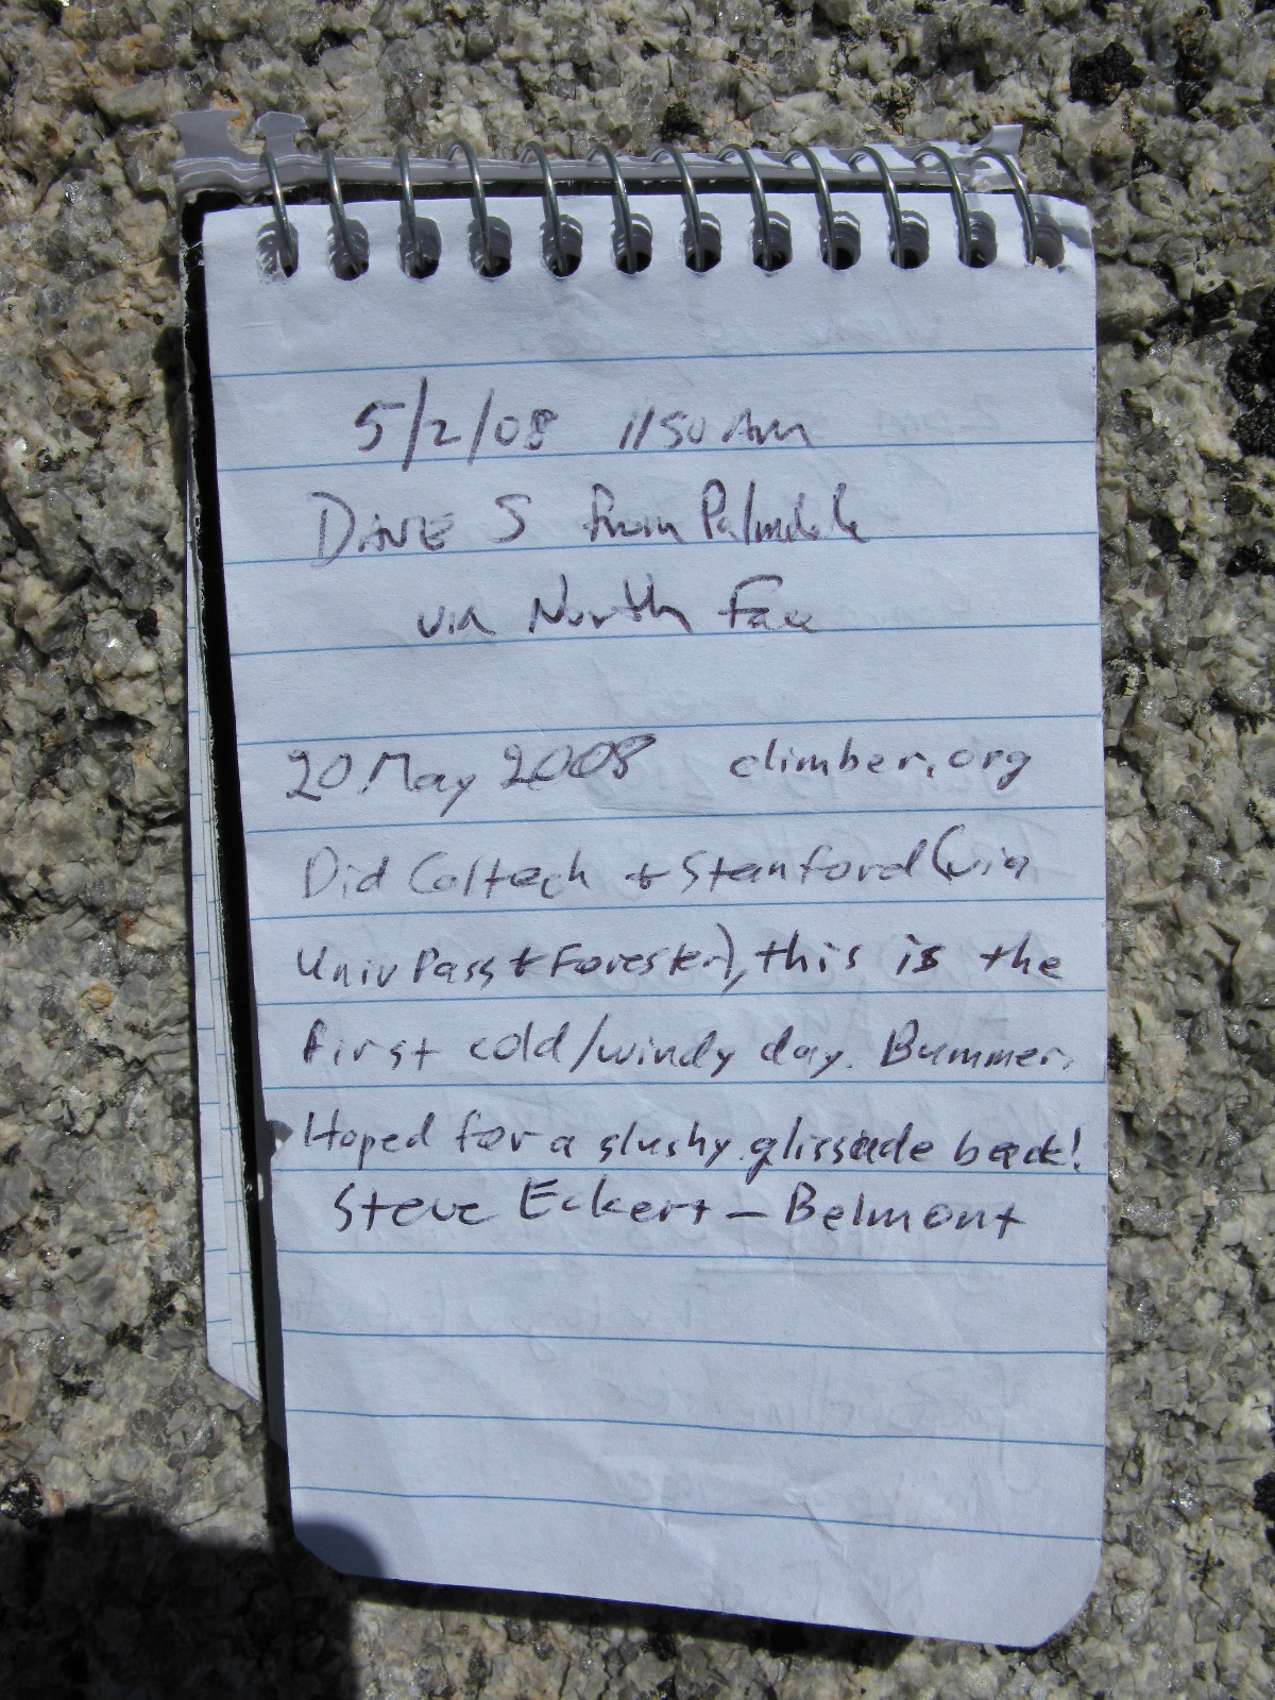 5/2/08 1150 AM
DAVE S from Palmdale
via North Face
20 May 2008 climber.org
Did Caltech + Stanford (via
Univ Pass + Forester), this is the
first cold/windy day. Bummer.
Hoped for a slushy glissade back!
Steve Eckert - Belmont